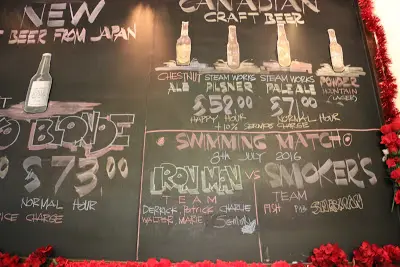 NEW
BEER FROM JAPAN
BLONDE
$73.00
NORMAL HOUR
CHARGE
CANADIAN
CRAFT BEER
CHESTNUT ALE
STEAM WORKS PILSNER
STEAM WORKS PALE ALE
POWDER MOUNTAIN
$58.00
HAPPY HOUR
$71.00
NORMAL HOUR
+10% SERVICE CHARGE
SWIMMING MATCH
8th JULY 2016
IRON MAN
TEAM
Derrick, Patrick, Charlie
WALTER, MARIE
VS
SMOKER'S
TEAM